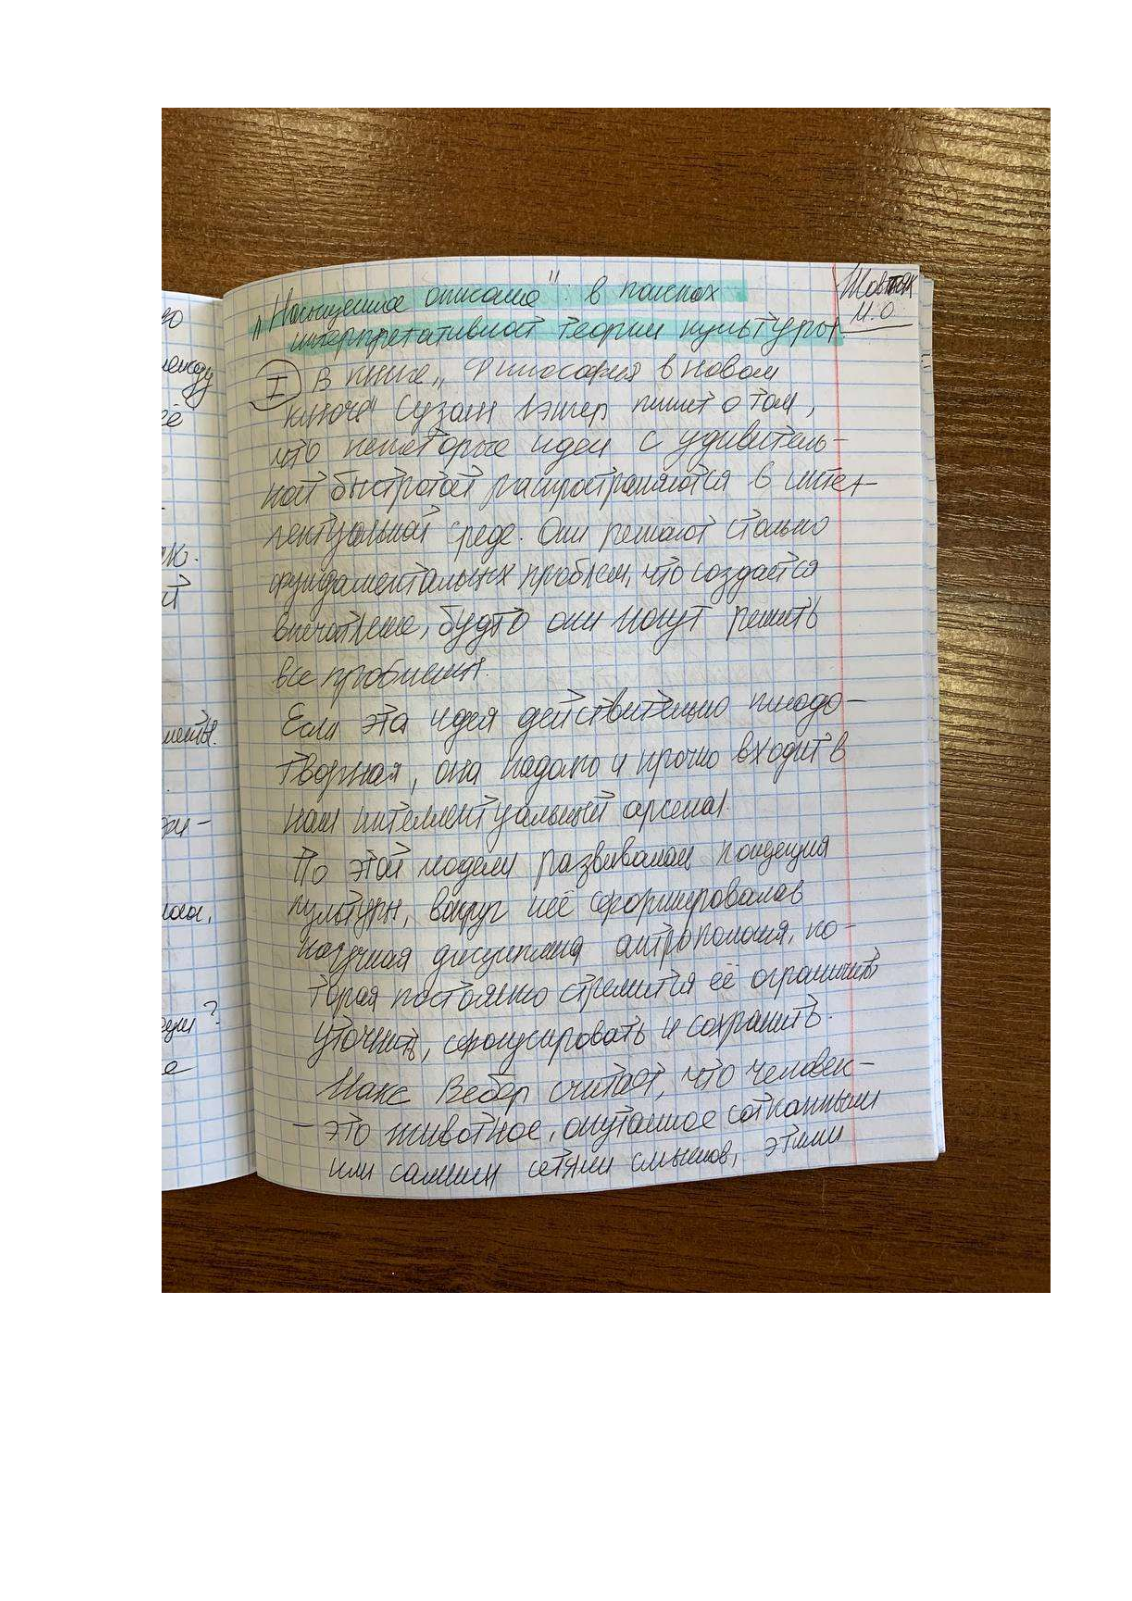 Шовтяк
И.О.
„Насыщенное описание": в поисках
интерпретативной теории культуры
I В книге „Философия в новом
ключе" Сузан Лэнгер пишет о том,
что некоторые идеи с удивитель-
ной быстротой распространяются в интел-
лектуальной среде. Они решают столько
фундаментальных проблем, что создается
впечатление, будто они могут решить
все проблемы.
Если эта идея действительно плодо-
творная, она надолго и прочно входит в
наш интеллектуальный арсенал.
По этой модели развивалась концепция
культуры, вокруг неё сформировалась
научная дисциплина антропология, ко-
торая постоянно стремится её ограничить
уточнить, сфокусировать и сохранить.
Макс Вебер считает, что человек-
- это животное, опутанное сотканными
им самим сетями смыслов, этими